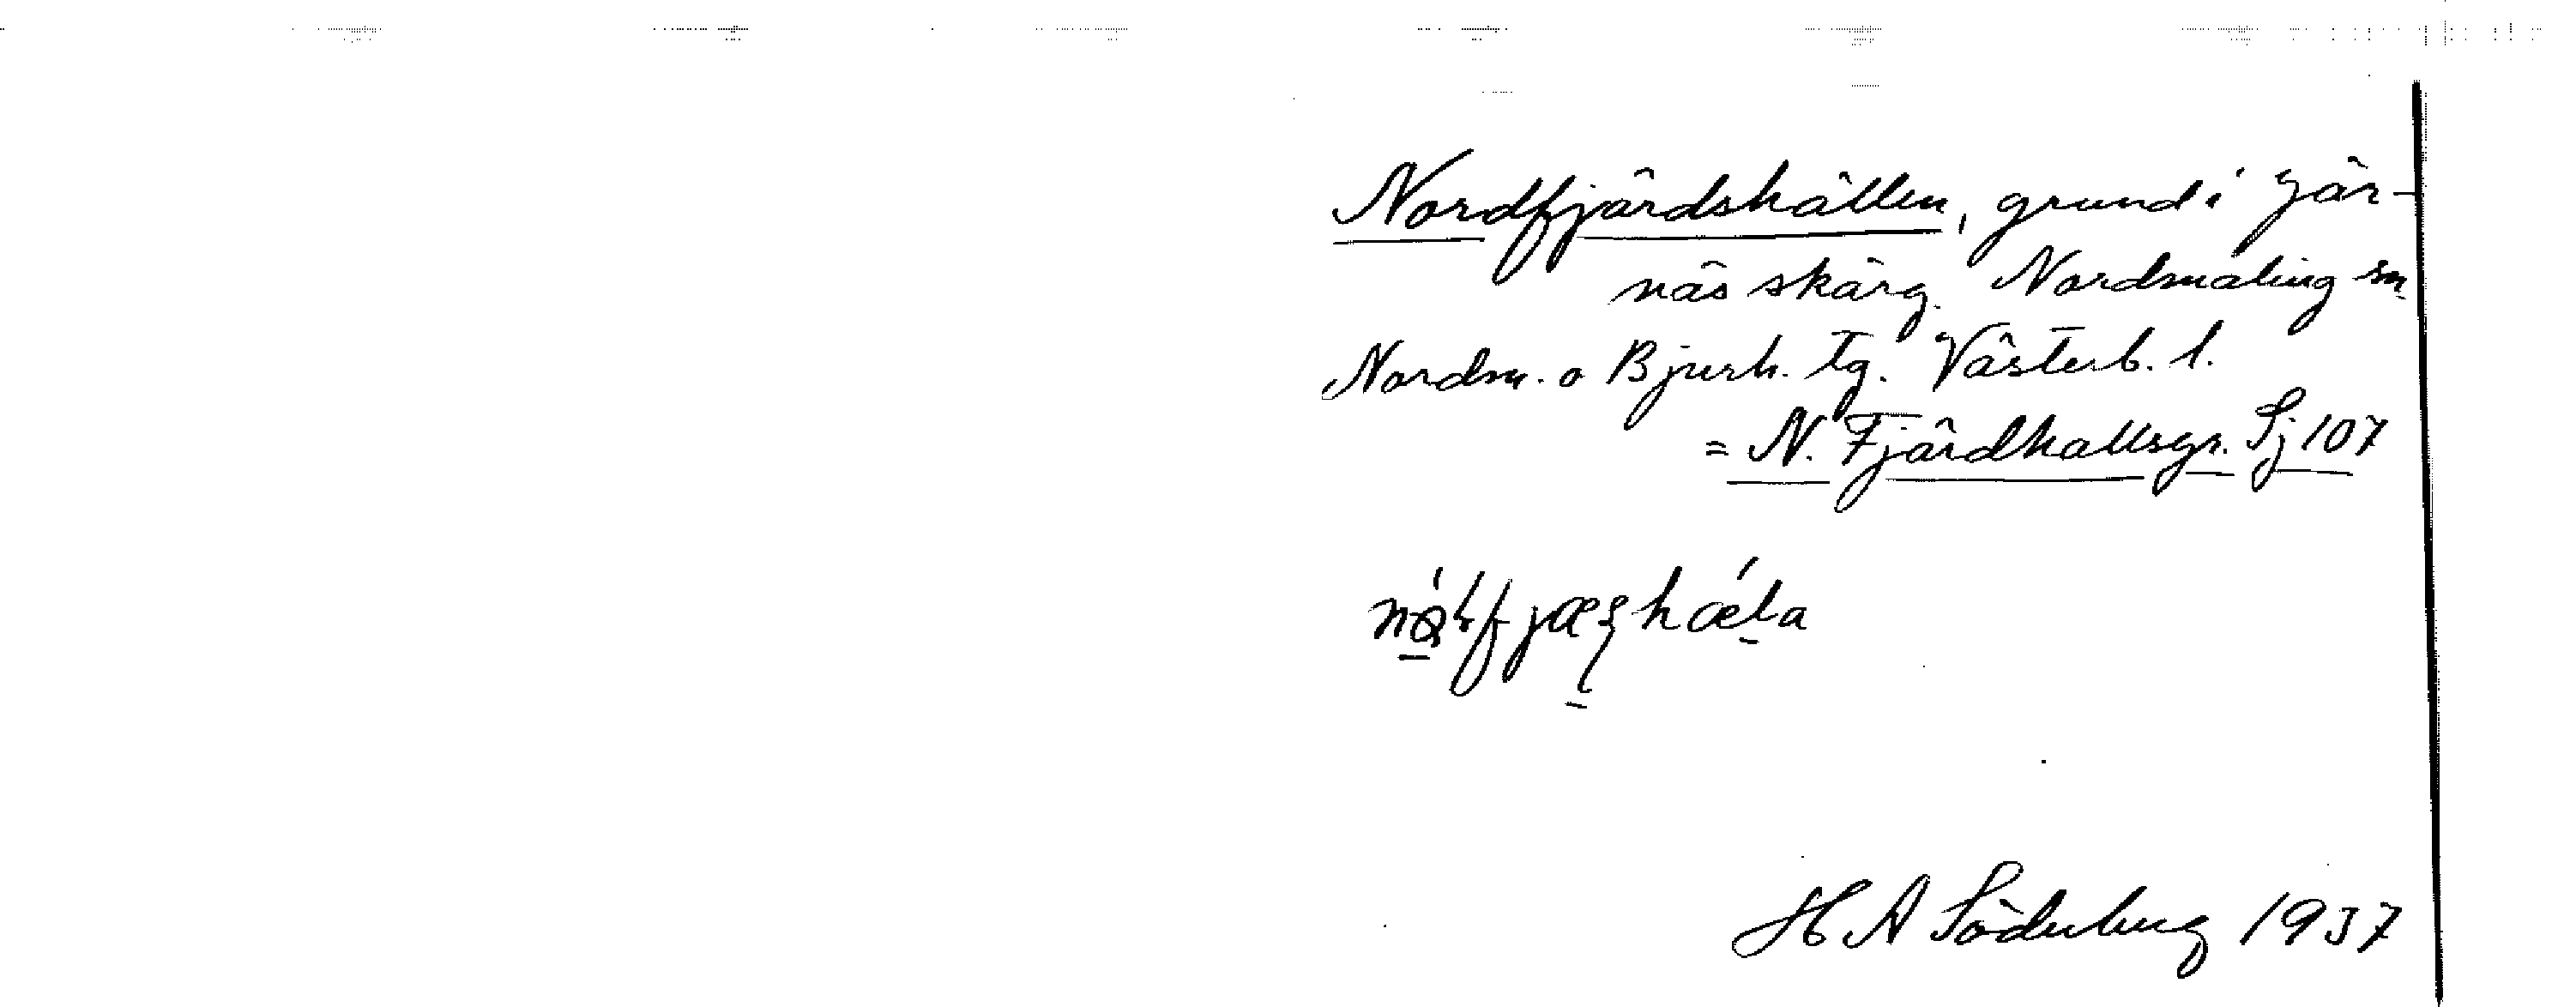 Nordfjärdshällen, grund i Jär-
näs skärg. Nordmaling sn
Nordm. o Bjurh. tg. Västerb. l.
= N. Fjärdhallsgr. Sj 107
H A Söderberg 1937